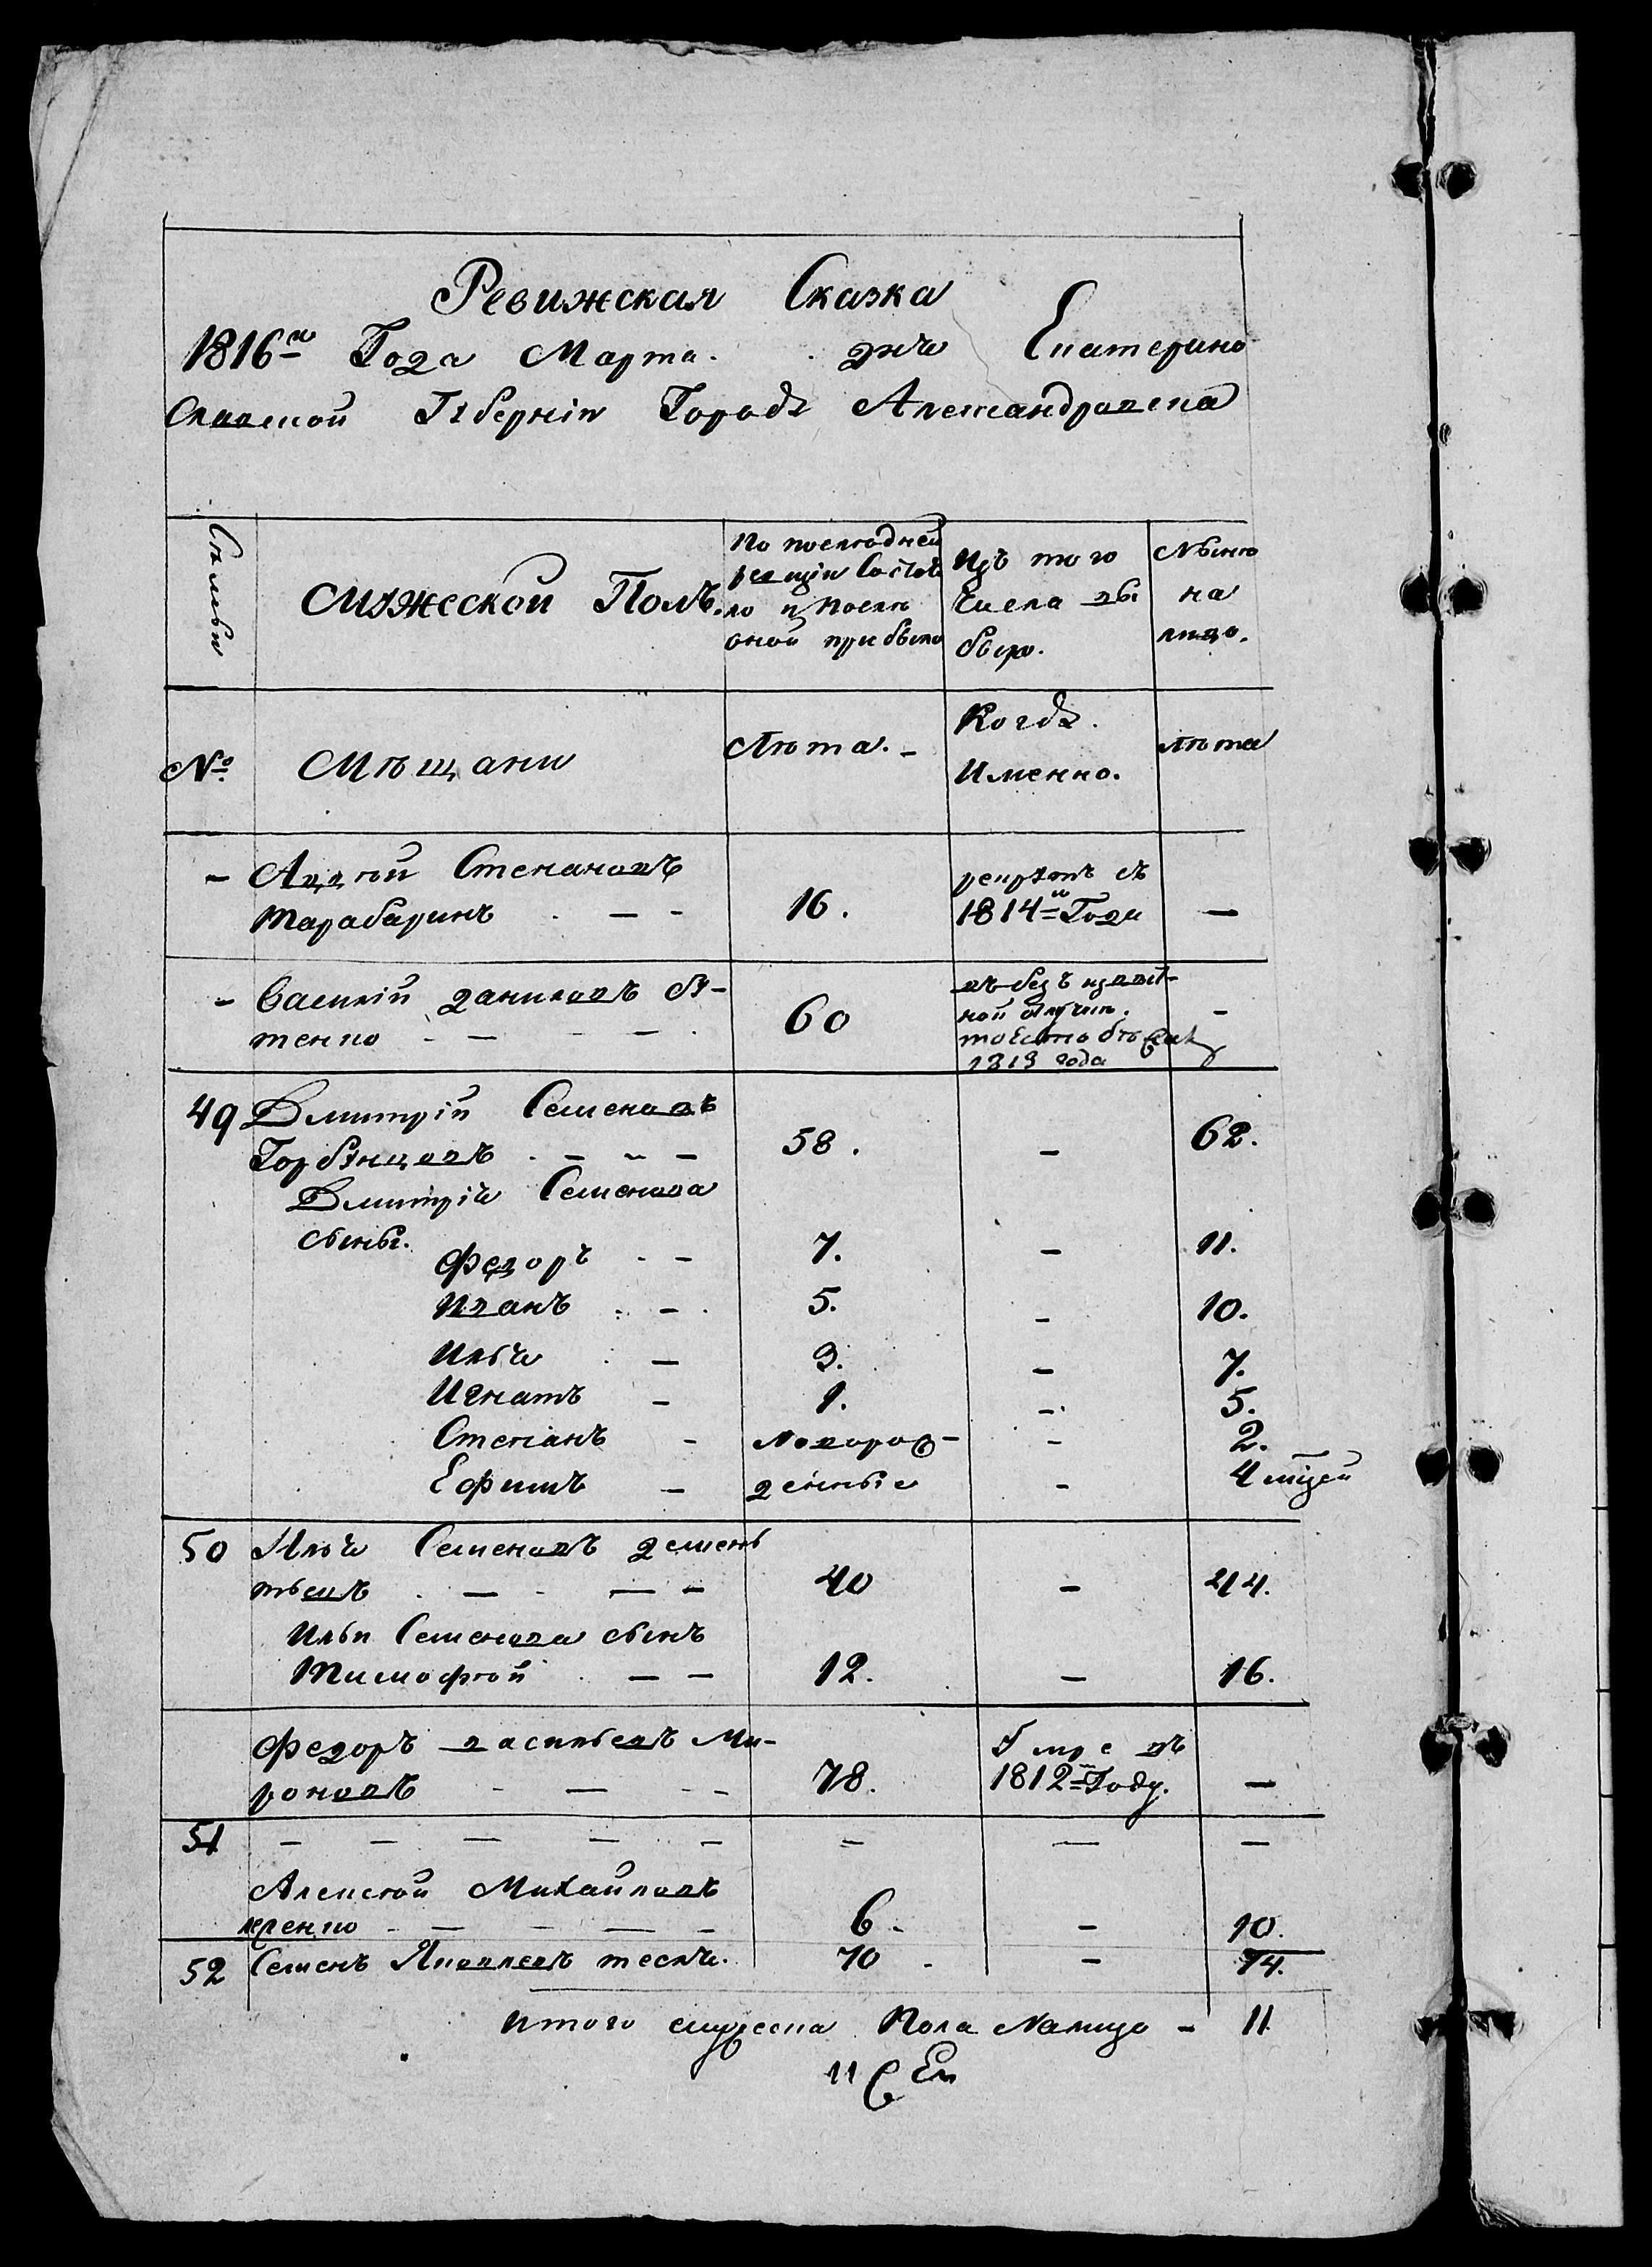 Ревижская Сказка
1816го Года Марта дня Екатерино
Славской Гꙋберніи Городꙋ Александровска
Семьи
Мꙋжескои Полъ.
По последней
ревизіи Состоя
ло и после
оной прибыло
Изъ того
Числа вы
было.
Нынѣ
на
лицо.
№
Мѣщани
Лѣта. –
Когдꙋ.
Именно.
лѣта
– Андрей Степановъ
Тарабаринъ – – 16. рекрꙋтъ съ 1814го Года –
– Василій Даниловъ
тенко – – – – 60 въ безъизвѣст-
ной
1813 года –
49 Дмитрій Семеновъ
Горбꙋнцовъ – – – 58. – 62.
Дмитрія Семенова
сыны.
Федоръ – – 7. – 11.
Иванъ – 5. – 10.
Илья – 3. – 7.
Игнатъ – 1. – 5.
Степанъ – Новорож- – 2.
Ефимъ – денные – 4 мцей
50 Илья Семеновъ Демень
тьевъ – – – 40 – 44.
Ильи Семенова сынъ
Тимофей – – 12. – 16.
Федоръ Васильевъ Ми-
роновъ – – – 78. Умре въ 1812м Году. –
51 – – – – – – – –
Алексей Михайловъ
– – – – 6 – – 10.
52 Семенъ Яковлевъ 70 – – 74.
Итого мꙋжеска Пола Налицо – 11
11